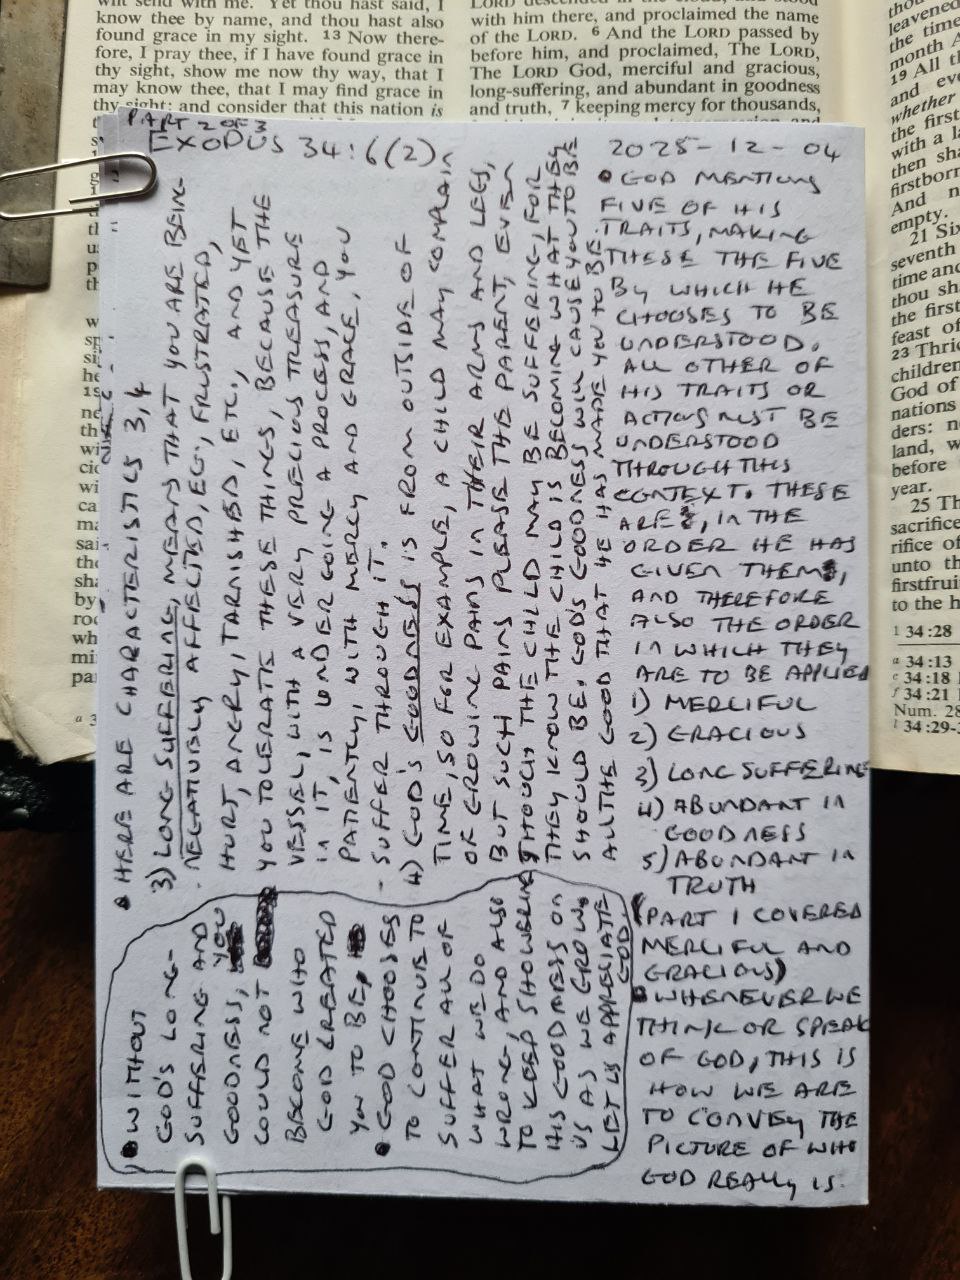 will send with me. Yet thou hast said, I
know thee by name, and thou hast also
found grace in my sight. 13 Now there-
fore, I pray thee, if I have found grace in
thy sight, show me now thy way, that I
may know thee, that I may find grace in
thy sight: and consider that this nation is
with him there, and proclaimed the name
of the LORD. 6 And the LORD passed by
before him, and proclaimed, The LORD,
The LORD God, merciful and gracious,
long-suffering, and abundant in goodness
and truth, 7 keeping mercy for thousands,
leavened
the time
month A
19 All th
and eve
whether
the first
with a la
then sha
firstborn
And n
empty.
21 Six
seventh
time and
thou sha
the first
feast of
23 Thric
children
God of
nations
ders: ne
land, w
before
year.
25 Thou
sacrifice
rifice of
unto th
firstfruit
to the h
1 34:28
a 34:13
c 34:18
f 34:21
Num. 28
l 34:29-
PART 2 OF 3
EXODUS 34:6(2)
2025-12-04
• GOD MENTIONS
FIVE OF HIS
TRAITS, MAKING
THESE THE FIVE
BY WHICH HE
CHOOSES TO BE
UNDERSTOOD.
ALL OTHER OF
HIS TRAITS OR
ACTIONS MUST BE
UNDERSTOOD
THROUGH THIS
CONTEXT. THESE
ARE, IN THE
ORDER HE HAS
GIVEN THEM,
AND THEREFORE
ALSO THE ORDER
IN WHICH THEY
ARE TO BE APPLIED
1) MERCIFUL
2) GRACIOUS
3) LONG SUFFERING
4) ABUNDANT IN
GOODNESS
5) ABUNDANT IN
TRUTH
(PART 1 COVERED
MERCIFUL AND
GRACIOUS)
• WHENEVER WE
THINK OR SPEAK
OF GOD, THIS IS
HOW WE ARE
TO CONVEY THE
PICTURE OF WHO
GOD REALLY IS.
• HERE ARE CHARACTERISTICS 3,4
3) LONG SUFFERING, MEANS THAT YOU ARE BEING
NEGATIVELY AFFECTED, EG, FRUSTRATED,
HURT, ANGRY, TARNISHED, ETC., AND YET
YOU TOLERATE THESE THINGS, BECAUSE THE
VESSEL, WITH A VERY PRECIOUS TREASURE
IN IT, IS UNDERGOING A PROCESS, AND
PATIENTLY, WITH MERCY AND GRACE, YOU
SUFFER THROUGH IT.
4) GOD'S GOODNESS IS FROM OUTSIDE OF
TIME, SO FOR EXAMPLE, A CHILD MAY COMPLAIN
OF GROWING PAINS IN THEIR ARMS AND LEGS,
BUT SUCH PAINS PLEASE THE PARENT, EVEN
THOUGH THE CHILD MAY BE SUFFERING, FOR
THEY KNOW THE CHILD IS BECOMING WHAT THEY
SHOULD BE. GOD'S GOODNESS WILL CAUSE YOU TO BE
ALL THE GOOD THAT HE HAS MADE YOU TO BE.
• WITHOUT
GOD'S LONG-
SUFFERING AND
GOODNESS, YOU
COULD NOT
BECOME WHO
GOD CREATED
YOU TO BE.
• GOD CHOOSES
TO CONTINUE TO
SUFFER ALL OF
WHAT WE DO
WRONG, AND ALSO
TO KEEP SHOWERING
HIS GOODNESS ON
US AS WE GROW.
LET US APPRECIATE
GOD.